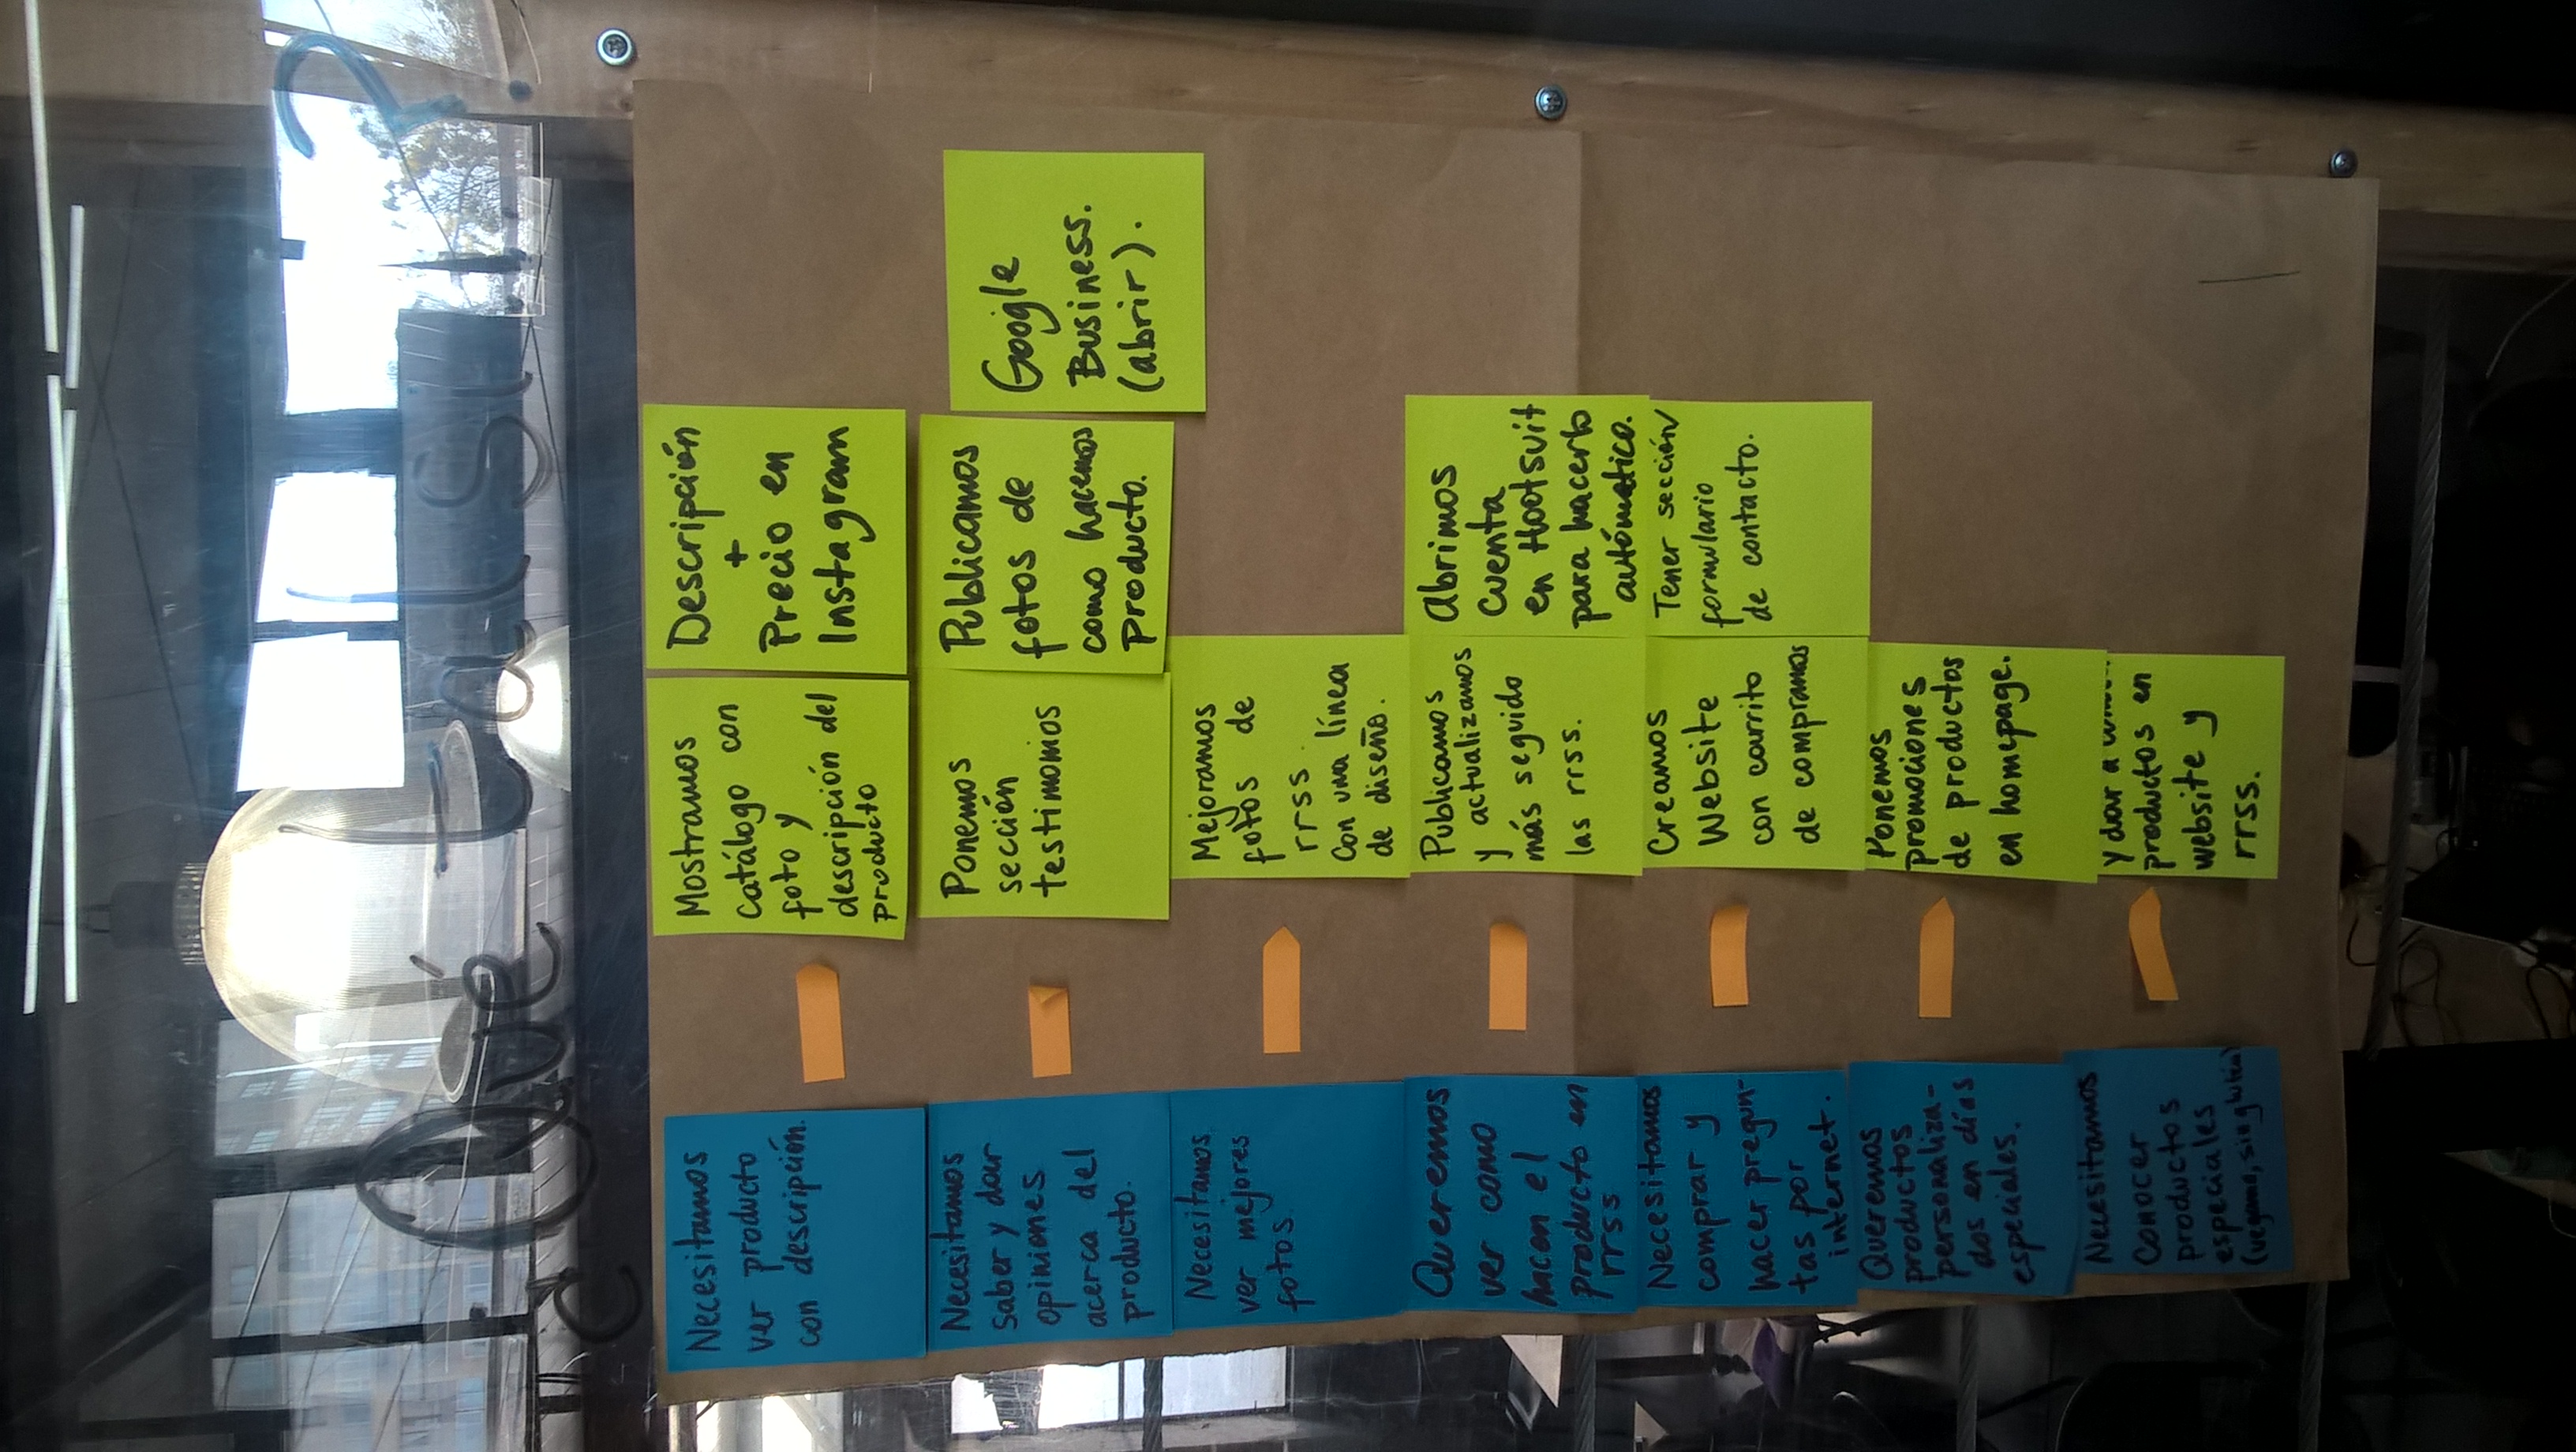 ¿Qué tal si...?
Necesitamos
ver producto
con descripción.
Mostramos
catálogo con
foto y
descripción del
producto
Descripción
+
Precio en
Instagram
Necesitamos
saber y dar
opiniones
acerca del
producto.
Ponemos
sección
testimomios
Publicamos
fotos de
como hacemos
producto.
Google
Business.
(abrir).
Necesitamos
ver mejores
fotos
Mejoramos
fotos de
rrss
Con una línea
de diseño.
Queremos
ver como
hacen el
producto en
rrss
Publicamos
y actualizamos
más seguido
las rrss.
Abrimos
cuenta
en Hootsuit
para hacerlo
autómatico.
Necesitamos
comprar y
hacer pregun-
tas por
internet.
Creamos
Website
con carrito
de compramos
Tener sección
formulario
de contacto.
Queremos
productos
personaliza-
dos en días
especiales.
Ponemos
promociones
de productos
en homepage.
Necesitamos
Conocer
productos
especiales
(vegano, sin gluten)
y dar a
productos en
website y
rrss.